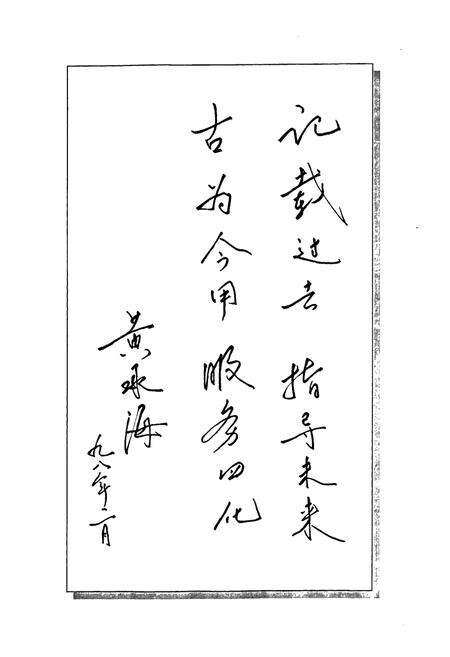 记载过去 指导未来
古为今用 服务四化
黄承海
九八年二月